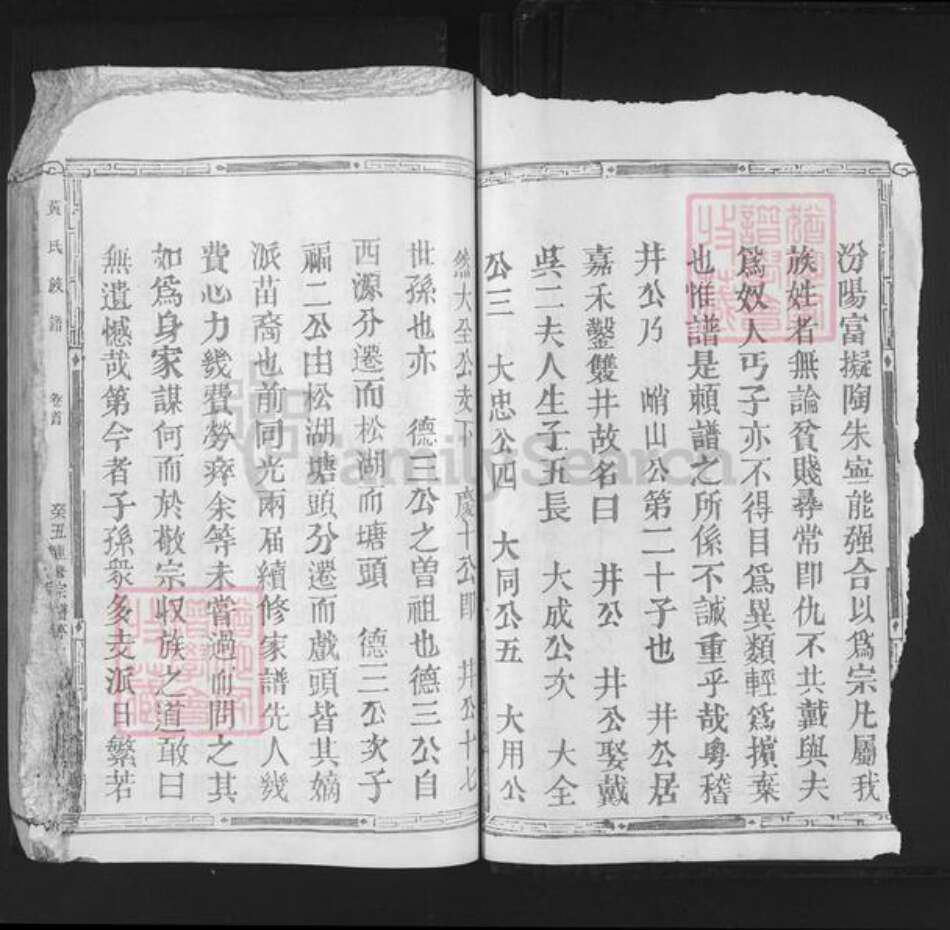 汾陽富擬陶朱寧能强合以爲宗凡屬我
族姓者無論貧賤尋常即仇不共戴與夫
爲奴人丐子亦不得目爲異類輕爲擯棄
也惟譜是賴譜之所係不誠重乎哉粤稽
井公乃 峭山公第二十子也 井公居
嘉禾鑿雙井故名曰 井公 井公娶戴
吳二夫人生子五長 大成公次 大全
公三 大忠公四 大同公五 大用公
然大全公支下 慶十公即 井公十七
世孫也亦 德三公之曾祖也德三公自
西源分遷而松湖而塘頭 德三公次子
福二公由松湖塘頭分遷而戲頭皆其嫡
派苗裔也前同光兩届續修家譜先人幾
費心力幾費勞瘁余等未嘗過而問之其
如爲身家謀何而於敬宗収族之道敢曰
無遺憾哉第今者子孫衆多支派日繁若
黃氏族譜 卷首 癸丑
FamilySearch